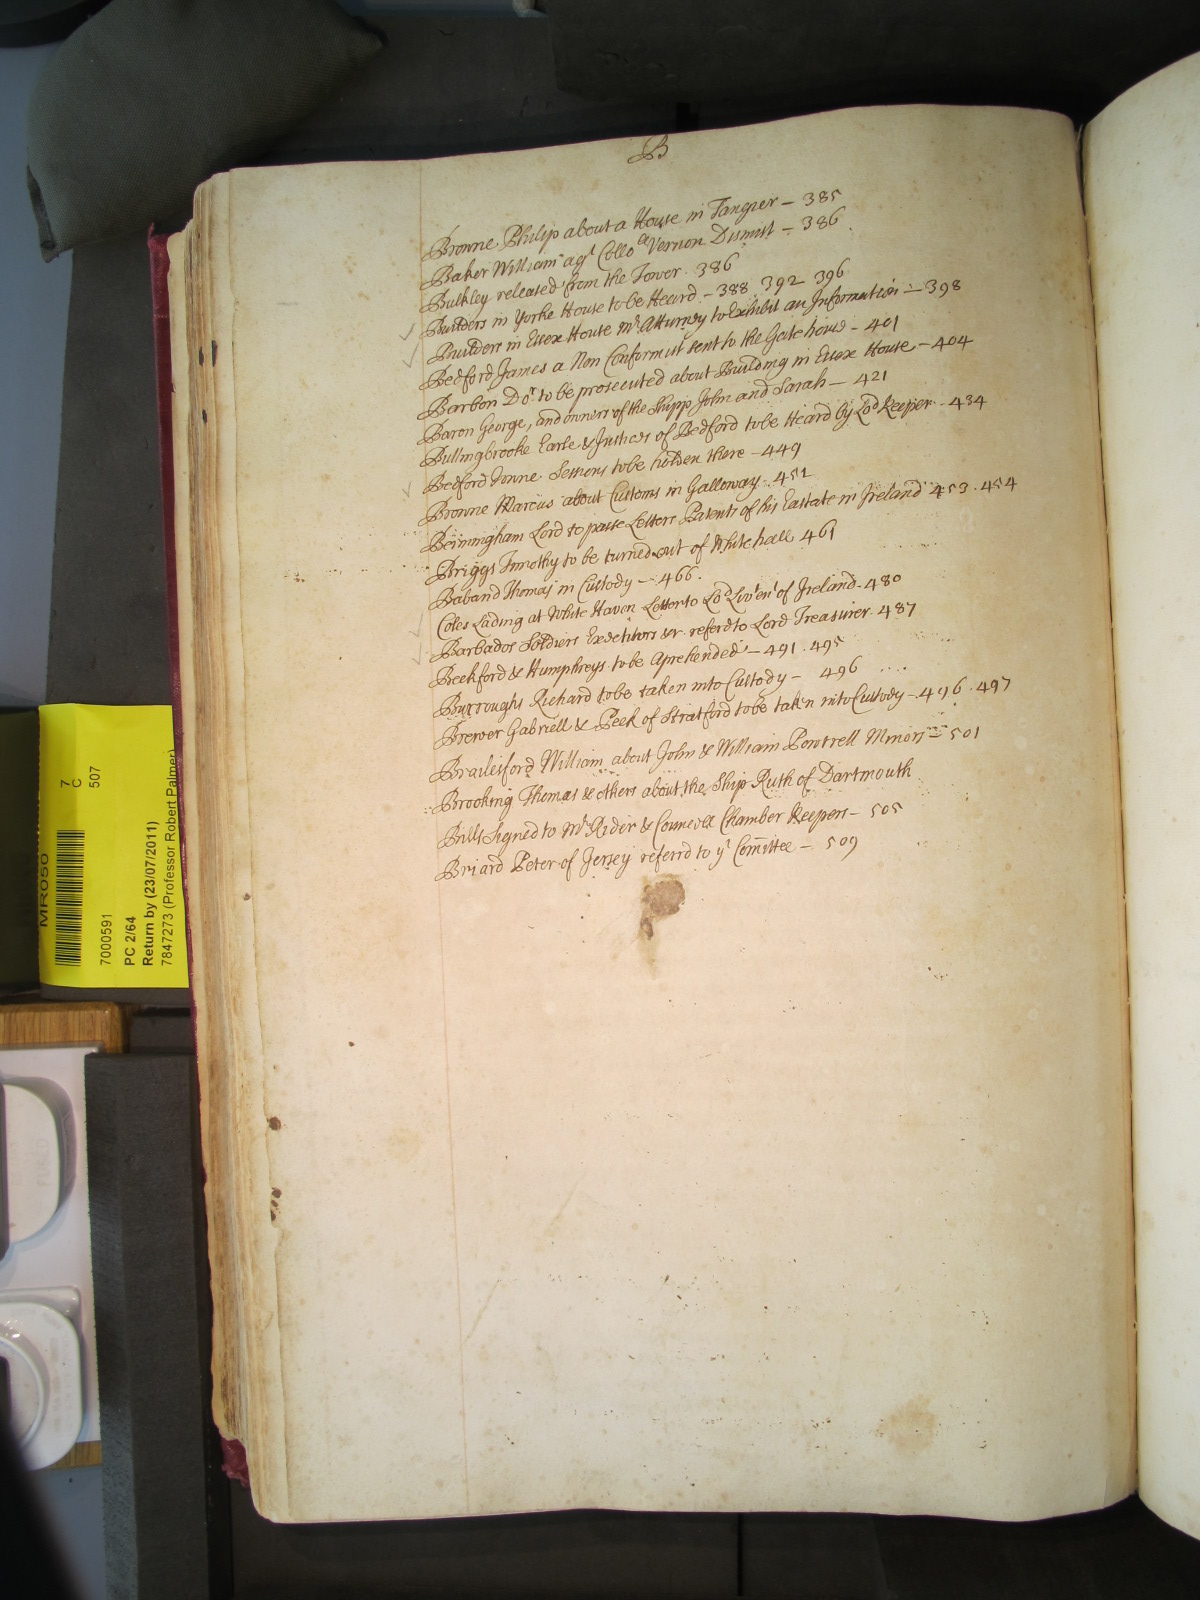 B
Browne Philip about a House in Tangier - 385
Baker William agt Collo:ll Vernon Dismist - 386
Bulkley released from the Tower. 386
Builders in Yorke House to be Heard - 388 392 396
Builders in Essex House Mr Atturney to Exhibit an Information - 398
Bedford James a Non Conformist sent to the Gatehouse - 401
Barbon Dor to be prosecuted about Building in Essex House - 404
Baron George, and owners of the Shipp John and Sarah - 421
Bullingbrooke Earle & Justices of Bedford to be Heard by Lod Keeper - 434
Bedford Towne Sessions to be holden there - 449
Browne Marcus about Customs in Galloway - 451
Bermingham Lord to passe Letters Patents of his Eastate in Ireland 453. 454
Briggs Timothy to be turned out of Whitehall 461
Baband Thomas in Custody - 466.
Coles Lading at White Haven Letter to Lod Livtent of Ireland. 480
Barbados Soldiers Executors &c referd to Lord Treasurer. 487
Beckford & Humphreys to be Aprehended - 491. 495
Burroughs Richard to be taken into Custody - 496
Brewer Gabriell & Peek of Stratford to be taken into Custody - 496. 497
Brailesford William about John & William Powtrell Minors - 501
Brooking Thomas & others about the Ship Ruth of Dartmouth
Bills signed to Mr Rider & Councill Chamber Keepers - 505
Briard Peter of Jersey referrd to ye Comittee - 509
MR050
7
C
507
7000591
PC 2/64
Return by (23/07/2011)
7847273 (Professor Robert Palmer)